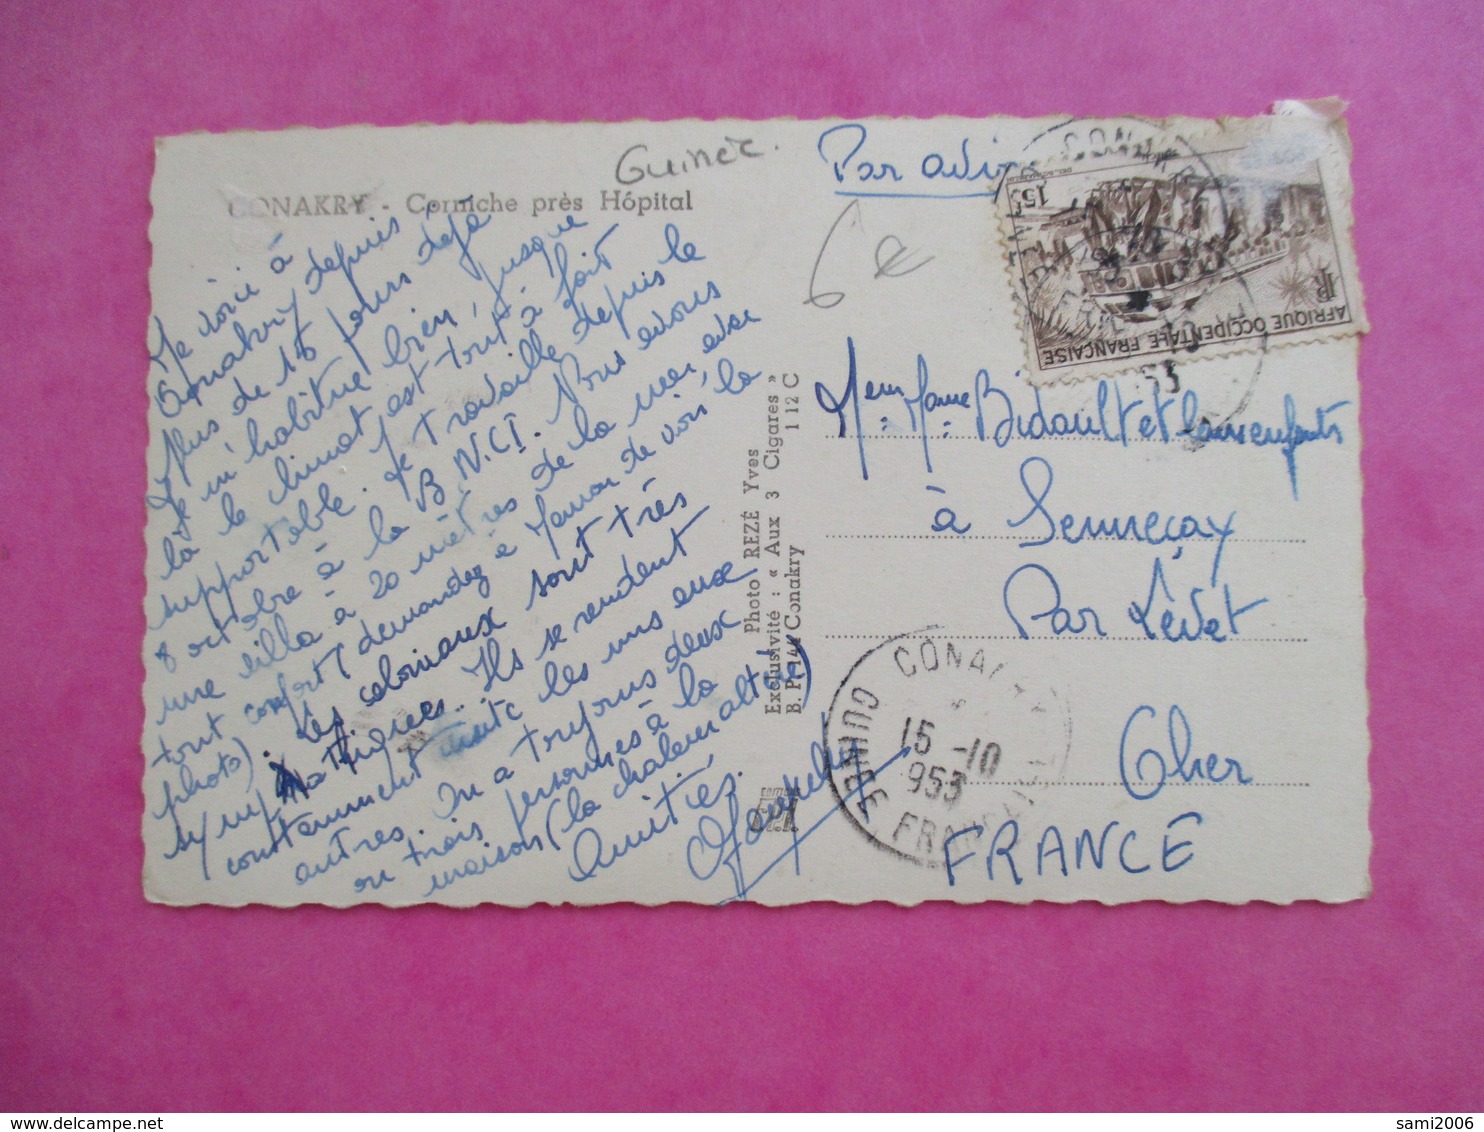 Guinée.
CONAKRY - Corniche près Hôpital
Me voici à
Conakry depuis
plus de 15 jours déjà
Je m'habitue bien, jusque
là le climat est tout à fait
supportable. Je travaille depuis le
8 octobre à la B.N.C.I. Nous avons
une villa à 20 mètres de la mer avec
tout confort (demandez à Manou de voir la
photo). Les coloniaux sont très
sympathiques. Ils se rendent
constamment visite les uns aux
autres. On a toujours deux
ou trois personnes à la
maison (la chaleur
Amitiés.
Photo REZÉ Yves
Exclusivité : « Aux 3 Cigares »
B. P. 144 Conakry 112 C
Par avion
6 €
15F
RF
AFRIQUE OCCIDENTALE FRANÇAISE
CONAKRY
53
Meur Mame Bidault et leurs enfants
à Senneçay
Par Levet
Cher
FRANCE
CONAKRY
15 -10
953
GUINEE FRANÇAISE
sami2006
www.delcampe.net